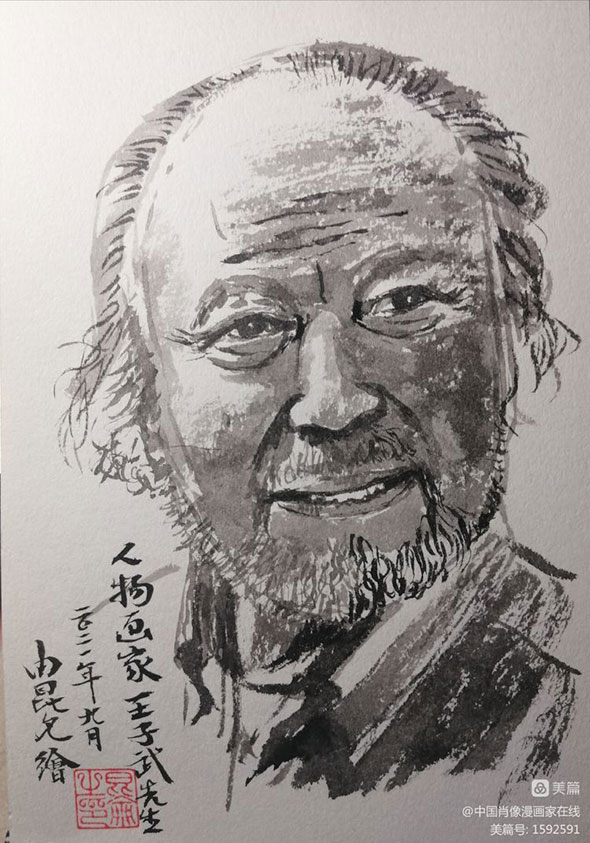 人物画家王子武先生
二〇二一年九月
由昆久繪
美篇
@中国肖像漫画家在线
美篇号: 1592591